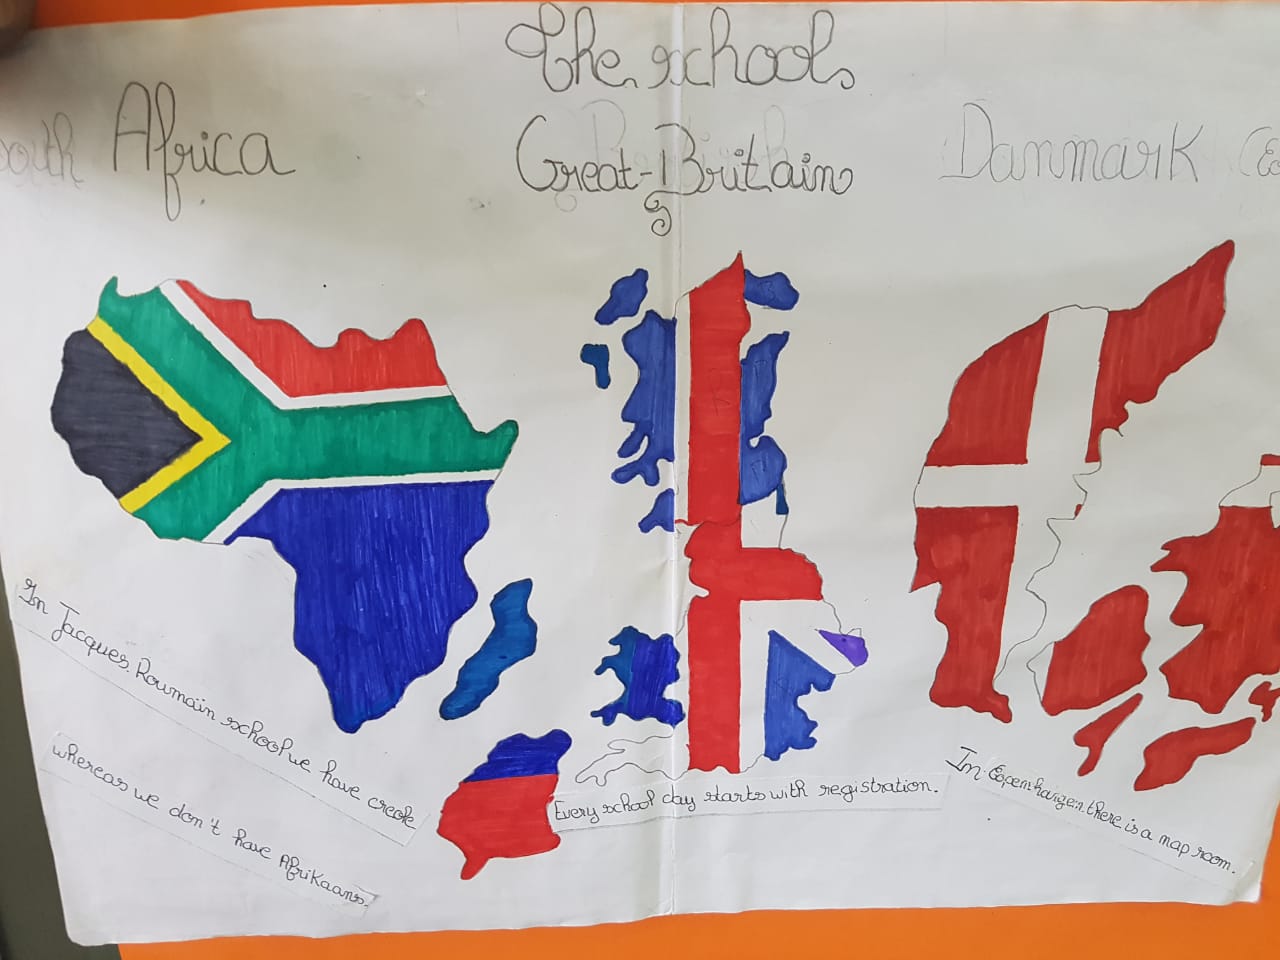 The school
South Africa
Great-Britain
Danmark
In Jacques Roumain school we have creole
whereas we don't have Afrikaans.
Every school day starts with registration.
In Copenhangen there is a map room.